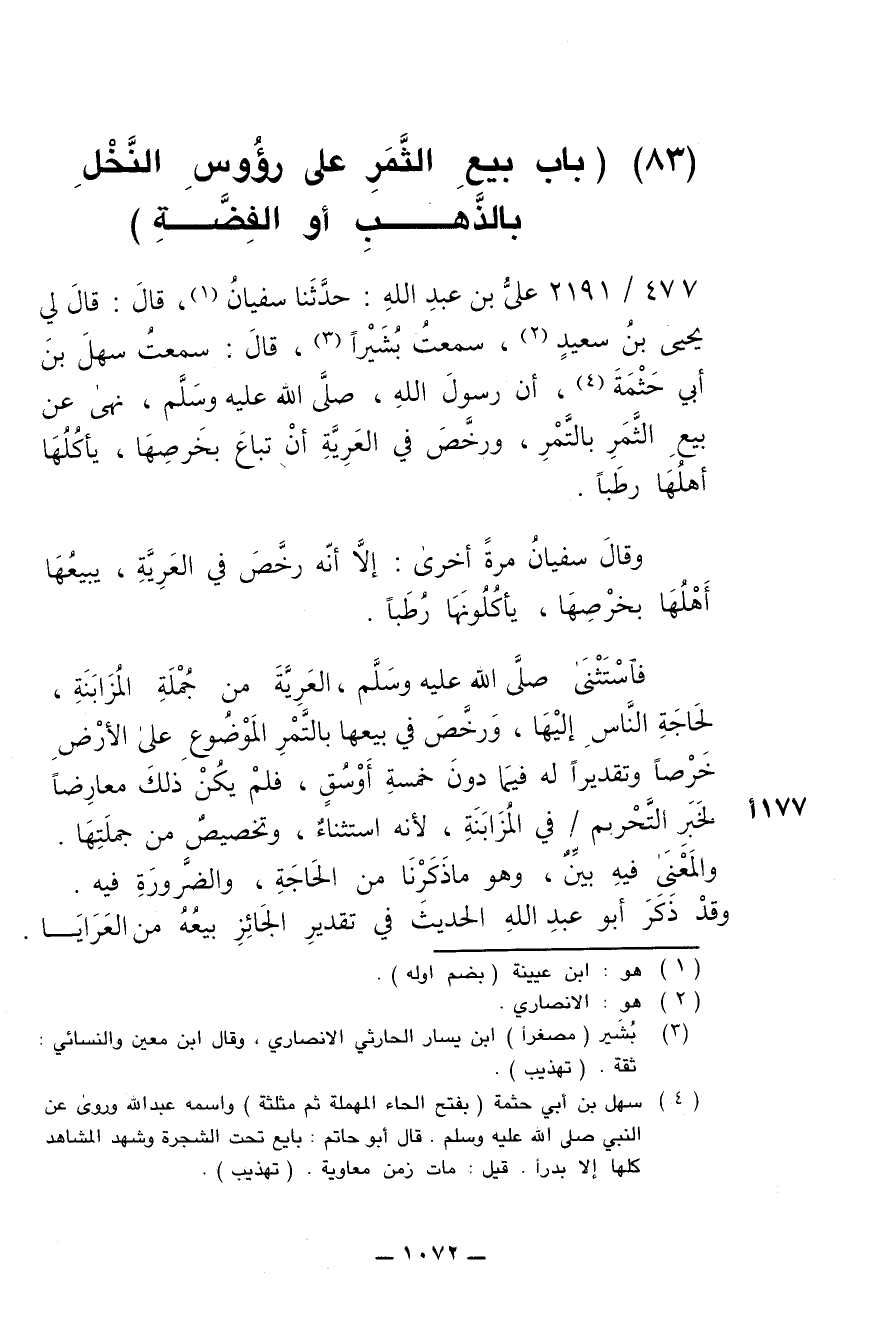 (٨٣) ( باب بيعِ الثَّمَرِ على رؤُوسِ النَّخْلِ
بالذَّهبِ أو الفِضَّةِ )
٤٧٧ / ٢١٩١ عليُّ بن عبدِ اللهِ : حدَّثَنا سفيانُ (١)، قالَ : قالَ لي
يحيى بنُ سعيدٍ (٢) ، سمعتُ بُشَيْراً (٣) ، قالَ : سمعتُ سهلَ بنَ
أبي حَثْمَةَ (٤) ، أن رسولَ اللهِ ، صلَّى الله عليه وسَلَّم ، نهىٰ عن
بيعِ الثَّمَرِ بالتَّمْرِ ، ورخَّصَ في العَرِيَّةِ أنْ تباعَ بخَرصِهَا ، يأكُلُهَا
أهلُهَا رطَباً .
وقالَ سفيانُ مرةً أخرىٰ : إلَّا أنّه رخَّصَ في العَرِيَّةِ ، يبيعُهَا
أَهْلُهَا بخرْصِهَا ، يأكُلُونَهَا رُطَباً .
فآسْتَثْنَىٰ صلَّى الله عليه وسَلَّم ، العَرِيَّةَ من جُمْلَةِ المُزَابَنَةِ ،
لحَاجَةِ النَّاسِ إليْهَا ، وَرخَّصَ في بيعها بالتَّمْرِ المَوْضُوعِ علىٰ الأرْضِ
خَرْصاً وتقديراً له فيمَا دونَ خمسةِ أَوْسُقٍ ، فلمْ يكُنْ ذلكَ معارِضاً
لخَبَرِ التَّحْريم / في المُزَابَنَةِ ، لأنه استثناءٌ ، وتخصيصٌ من جملَتِهَا .
١٧٧أ
والمَعْنَىٰ فيهِ بينٌِّ ، وهو ماذَكَرْنَا من الحَاجَةِ ، والضَّرورَةِ فيه .
وقدْ ذَكَرَ أبو عبدِ اللهِ الحديثَ في تقديرِ الجَائِزِ بيعُهُ من العَرَايَا .
(١) هو : ابن عيينة ( بضم اوله ) .
(٢) هو : الانصاري .
(٣) بُشَير ( مصغراً ) ابن يسار الحارثي الانصاري ، وقال ابن معين والنسائي :
ثقة . ( تهذيب ) .
(٤) سهل بن أبي حثمة ( بفتح الحاء المهملة ثم مثلثة ) واسمه عبدالله وروىٰ عن
النبي صلى الله عليه وسلم . قال أبو حاتم : بايع تحت الشجرة وشهد المشاهد
كلها إلا بدراً . قيل : مات زمن معاوية . ( تهذيب ) .
ــ ١٠٧٢ ــ